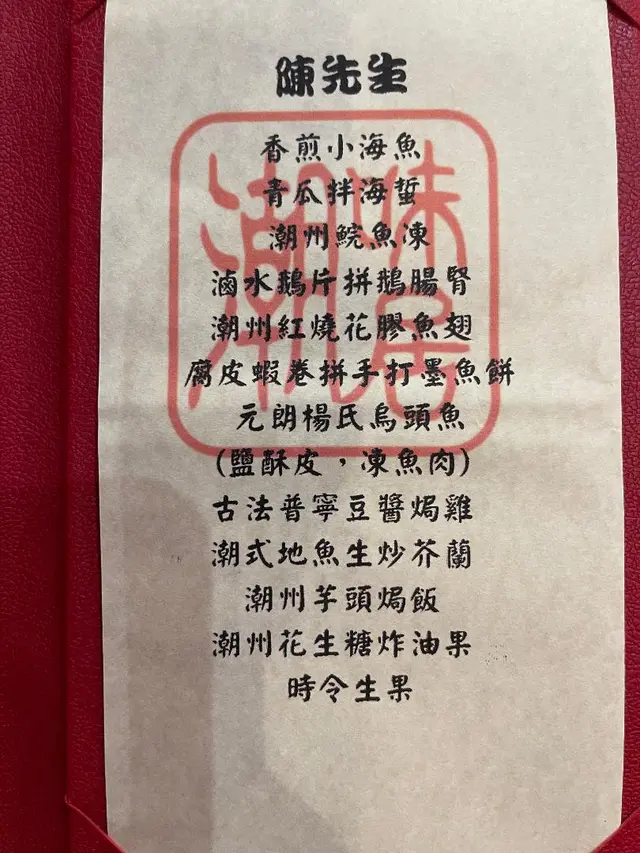 陳先生
香煎小海魚
青瓜拌海蜇
潮州鯇魚凍
滷水鵝片拼鵝腸腎
潮州紅燒花膠魚翅
腐皮蝦卷拼手打墨魚餅
元朗楊氏烏頭魚
(鹽酥皮，凍魚肉)
古法普寧豆醬焗雞
潮式地魚生炒芥蘭
潮州芋頭焗飯
潮州花生糖炸油果
時令生果